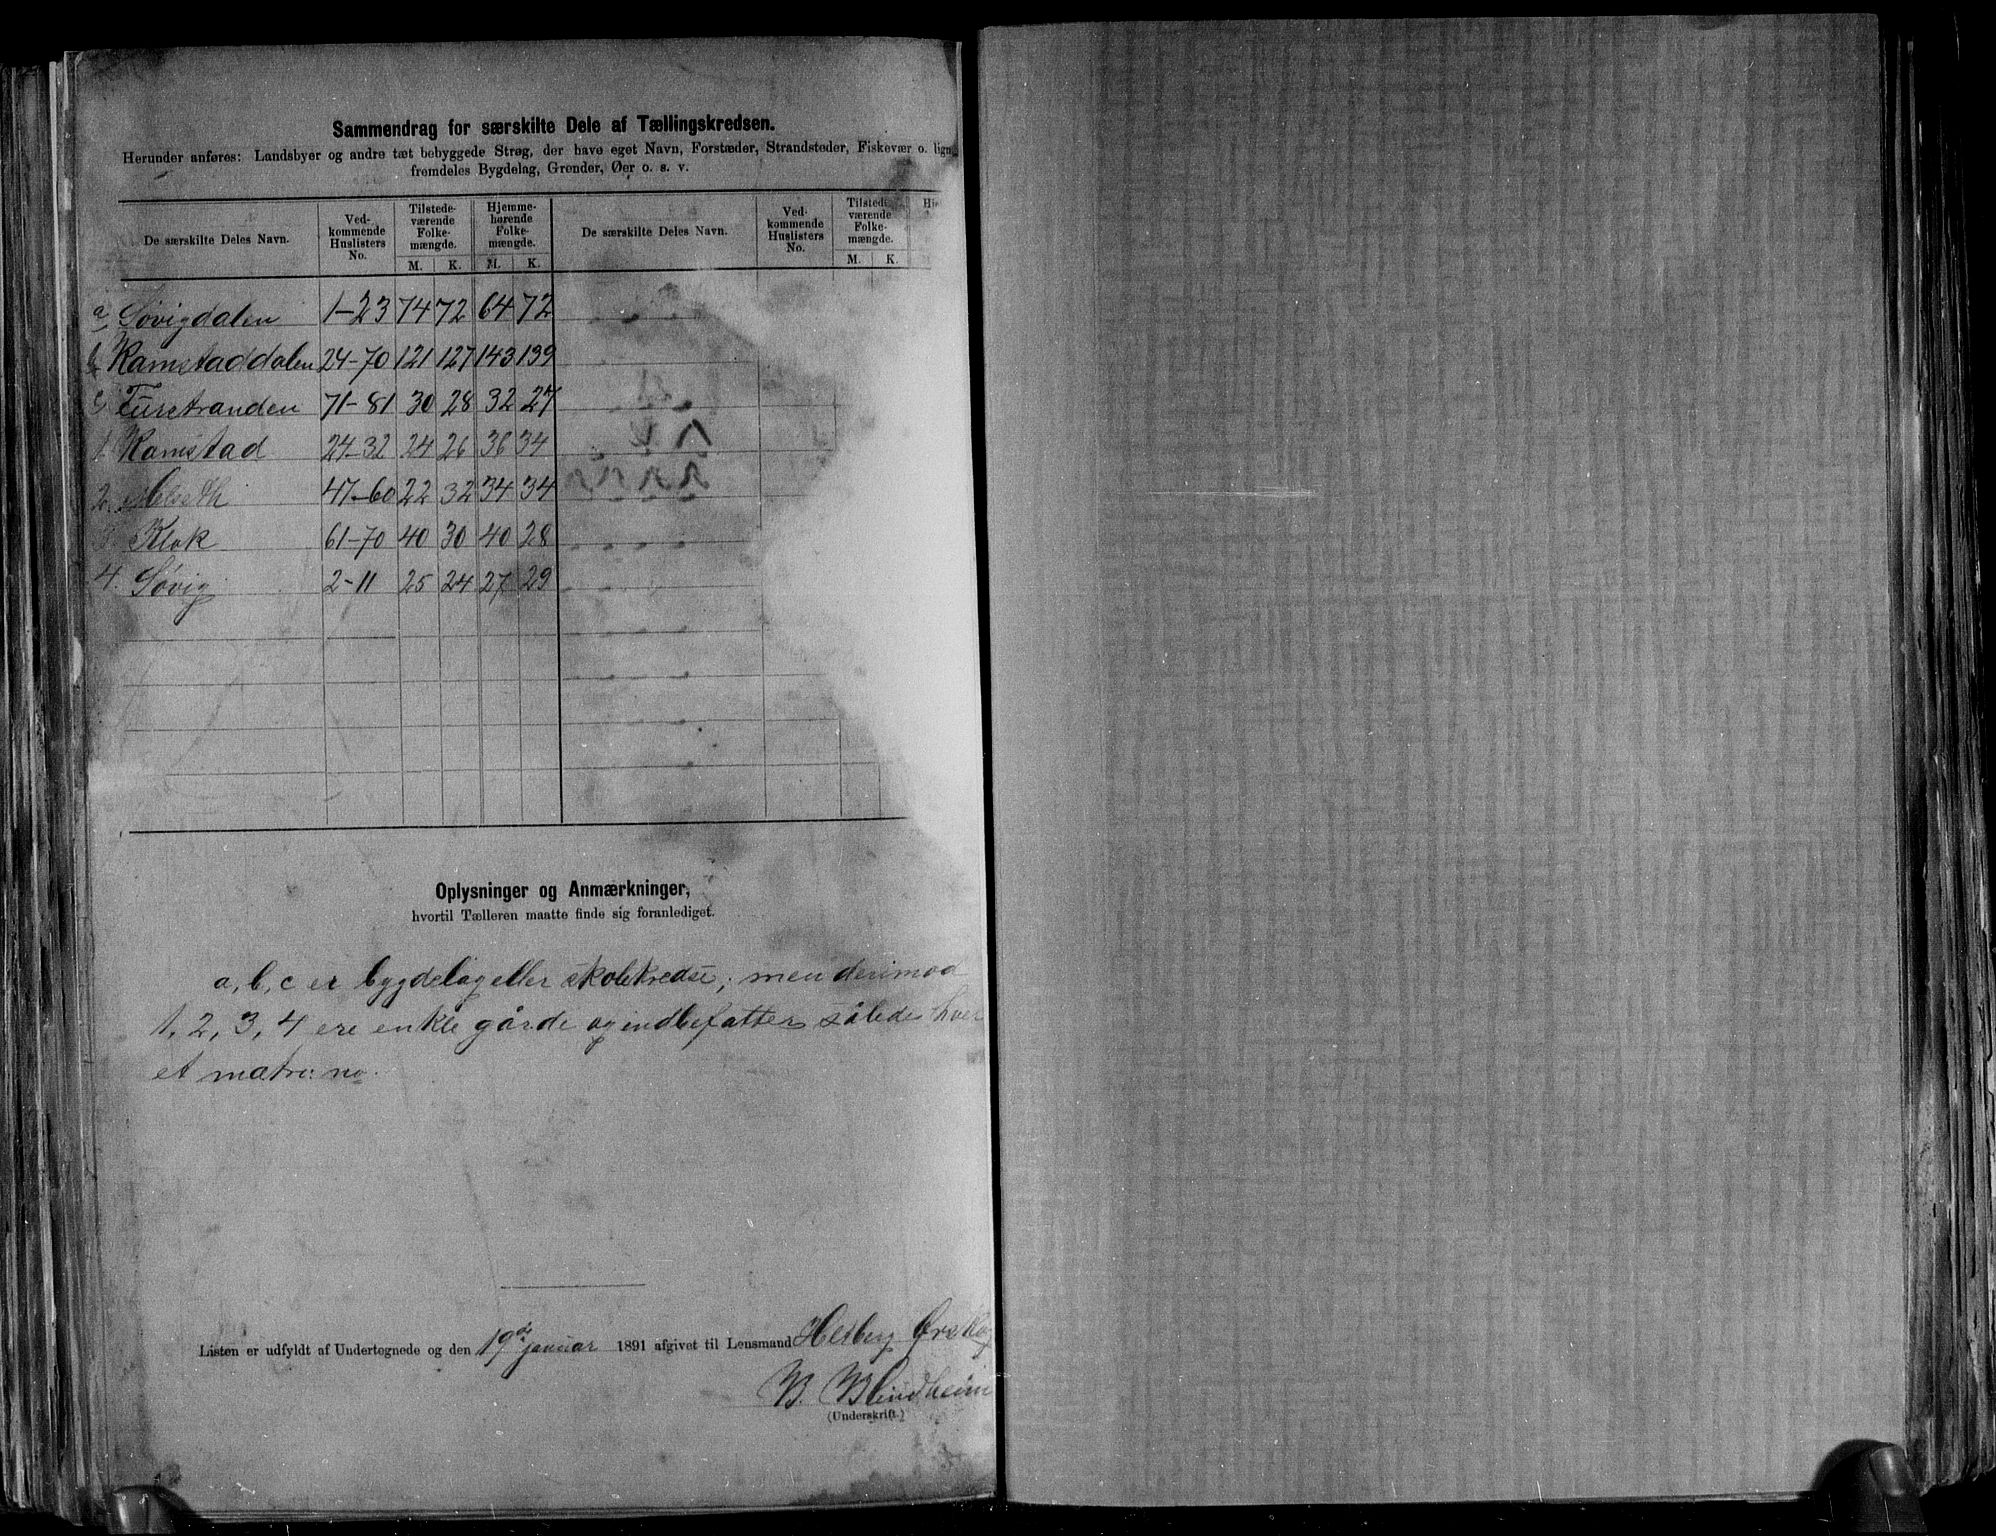 Sammendrag for særskilte Dele af Tællingskredsen.
Herunder anføres: Landsbyer og andre tæt bebyggede Strøg, der have eget Navn, Forstæder, Strandsteder, Fiskevær o. lign.
fremdeles Bygdelag, Grender, Øer o. s. v.
De særskilte Deles Navn. Ved-kommende Huslisters No. Tilstede-værende Folke-mængde. Hjemme-hørende Folke-mængde. De særskilte Deles Navn. Ved-kommende Huslisters No. Tilstede-værende Folke-mængde.
M. K. M. K. M. K.
a, Søvigdalen 1-23 74 72 64 72
b, Ramstaddalen 24-70 121 127 143 139
c, Turstranden 71-81 30 28 32 27
1. Ramstad 24-32 24 26 36 34
2. Melseth 47-60 22 32 34 34
3. Klok 61-70 40 30 40 28
4. Søvig 2-11 25 24 27 29
Oplysninger og Anmærkninger,
hvortil Tælleren maatte finde sig foranlediget.
a, b, c er bygdelag eller skolekredse; men derimod
1, 2, 3, 4 ere enkle gårde og indbefatter således hver
et matr: no.
Listen er udfyldt af Undertegnede og den 19de januar 1891 afgivet til Lensmand Ørskog
B. Blindheim
(Underskrift.)